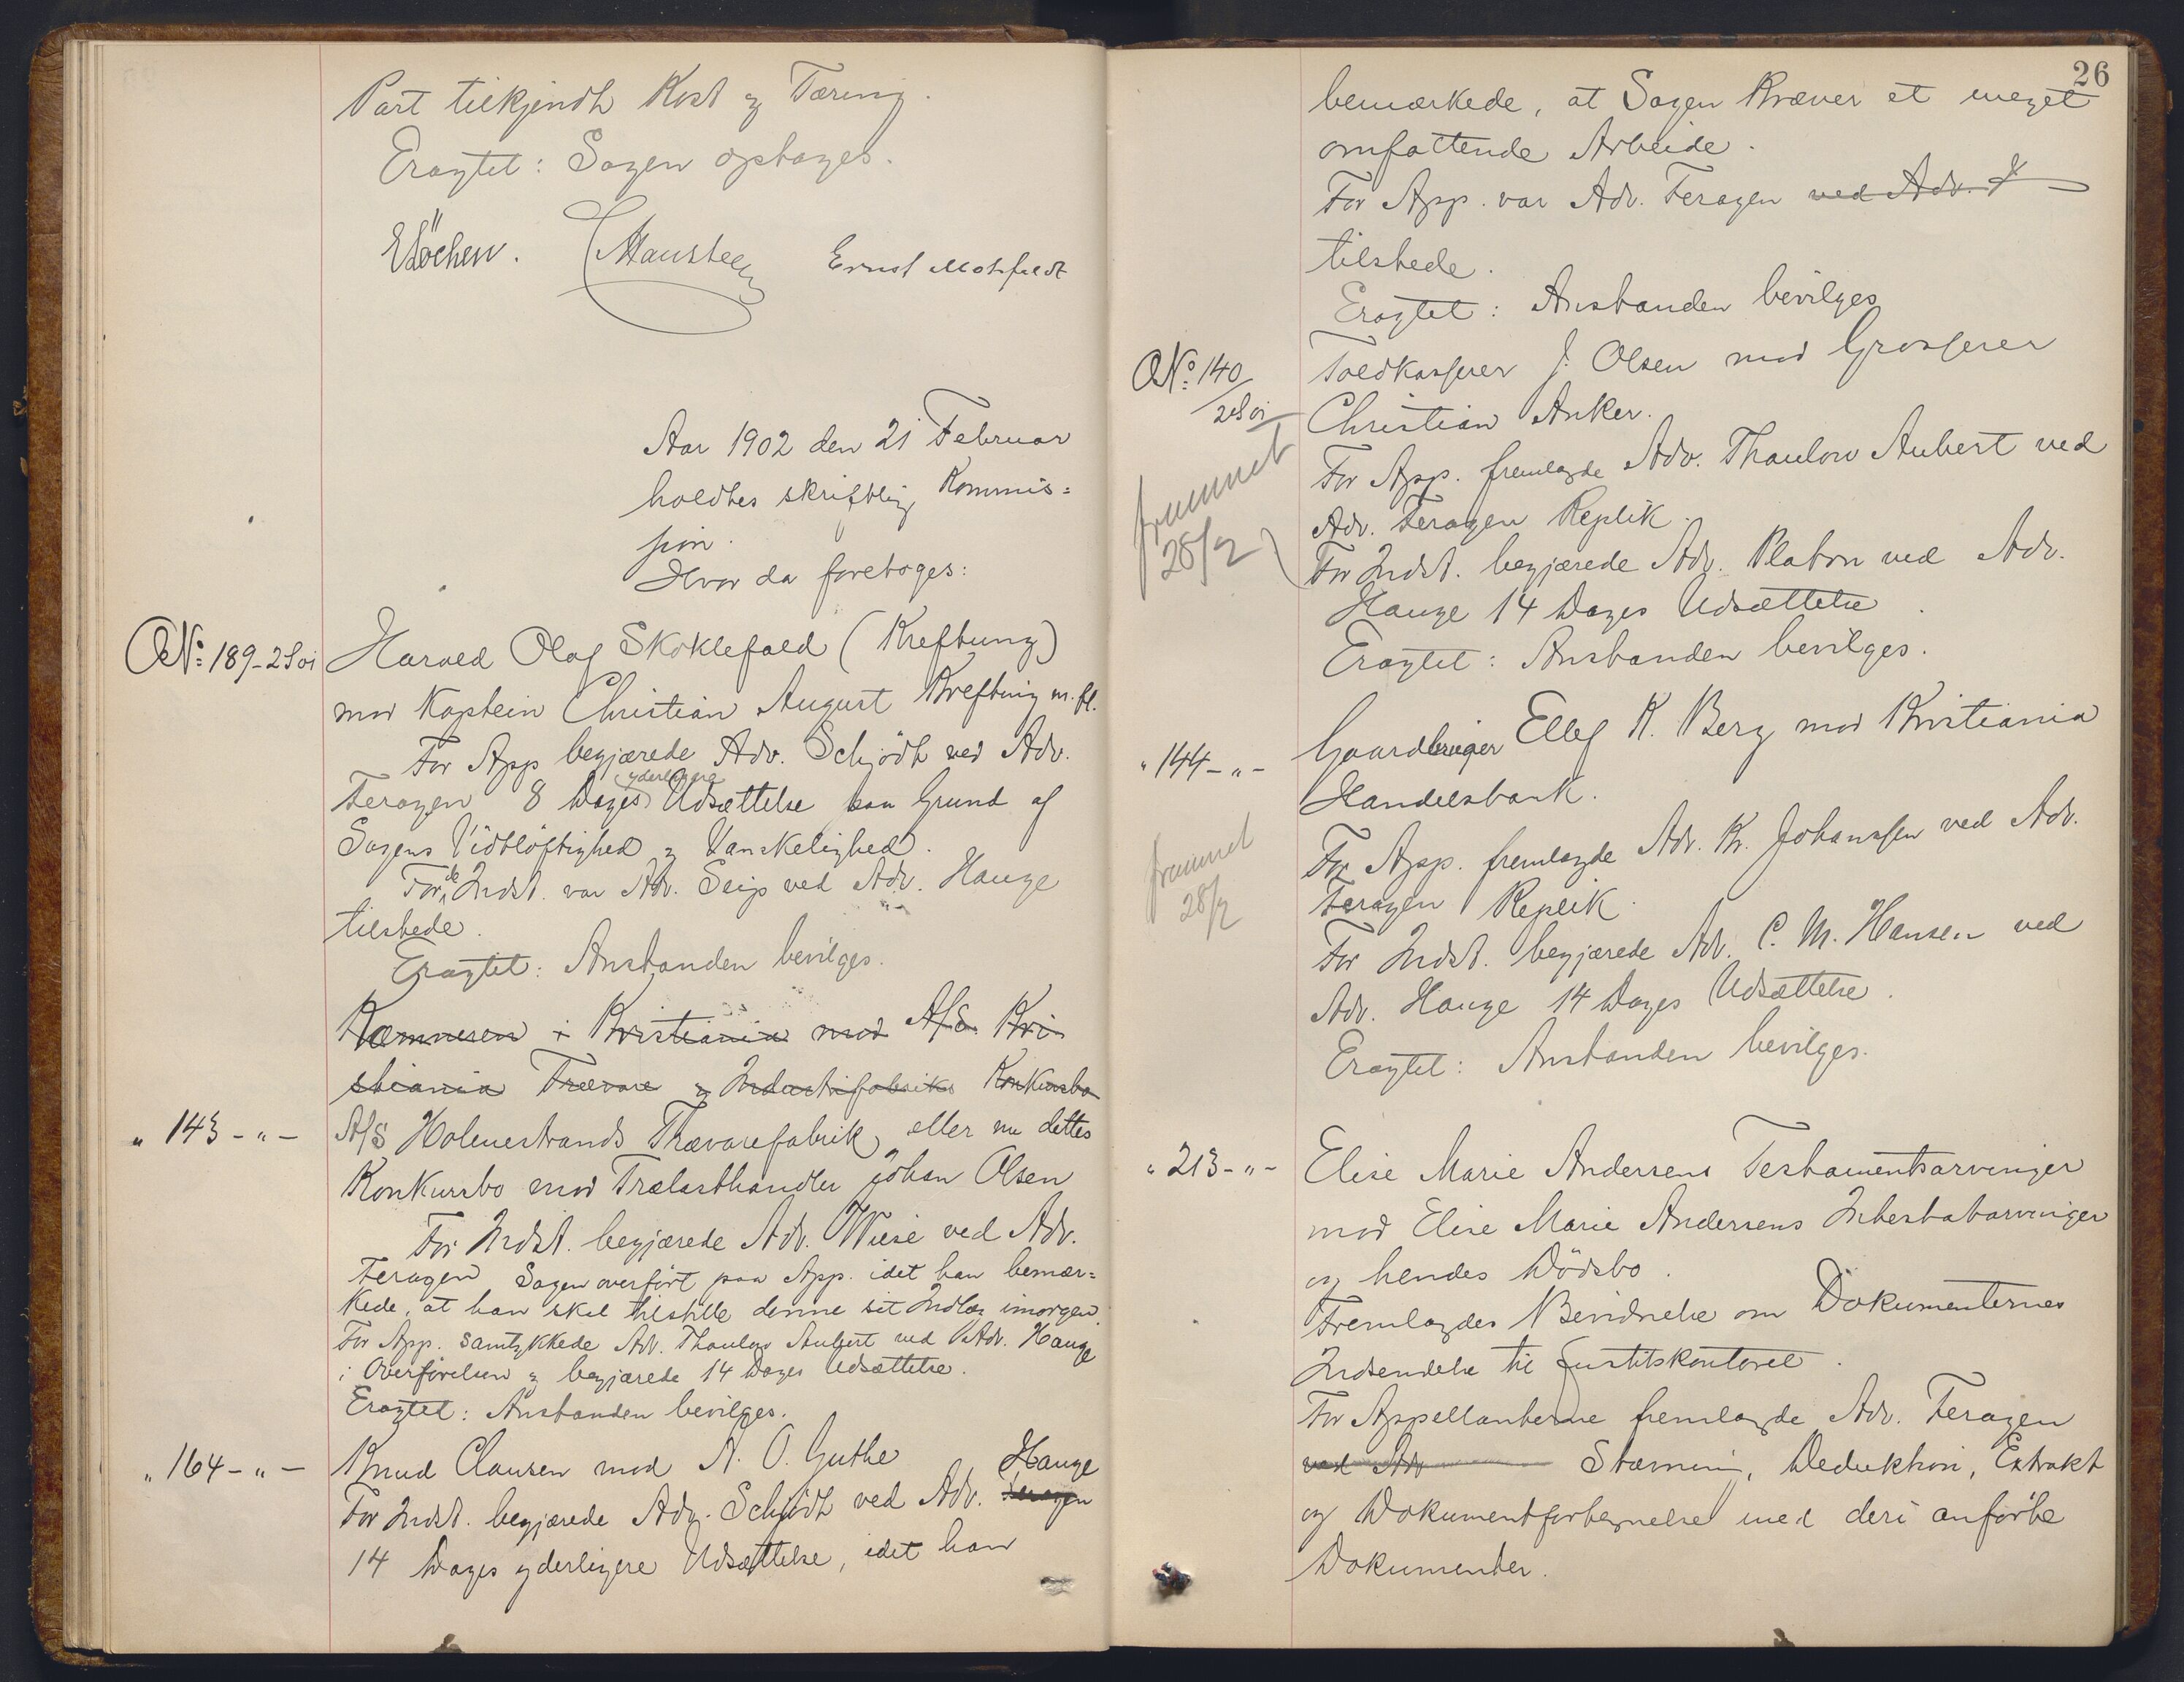 Part tilkjendt Kost og Tæring.
Eragtet: Sagen optages.
E Löchen. Hansteen Ernst Motzfeldt
Aar 1902 den 21 Februar
holdtes skriftlig Kommis=
sion.
Hvor da foretoges:
No 189-2S01 Harald Olaf Skoklefald (Krefting)
mod Kaptein Christian August Krefting m. fl.
For App begjærede Adv. Schjödt ved Adv.
Feragen 8 Dages yderligere Udsættelse paa Grund af
Sagens Vidtlöftighed og Vanskelighed.
For de Indst. var Adv. Seip ved Adv. Hauge
tilstede.
Eragtet: Anstanden bevilges.
Kæmneren i Kristiania mod A/S. Kri
stiania Trævare og Industrifabriks Konkursbo
" 143 - " - A/S Holmestrands Trævarefabrik, eller nu dettes
Konkursbo mod Trælasthandler Johan Olsen
For Indst. begjærede Adv. Wiese ved Adv.
Feragen Sagen overfört paa App. idet han bemær=
kede, at han skal tilstille denne sit Indlæg imorgen.
For App. samtykkede Adv. Thaulow Aubert ved Adv. Hauge
i Overförelsen og begjærede 14 Dages Udsættelse.
Eragtet: Anstanden bevilges.
" 164 - " - Knud Clausen mod A. O. Guthe
For Indst. begjærede Adv. Schjödt ved Adv. Feragen Hauge
14 Dages yderligere Udsættelse, idet han
26
bemærkede, at Sagen kræver et meget
omfattende Arbeide.
For App. var Adv. Feragen ved Adv. H
tilstede.
Eragtet: Anstanden bevilges
No 140/2S01 Toldkasserer J. Olsen mod Grosserer
Christian Anker.
frummet 28/2
For App. fremlagde Adv. Thaulow Aubert ved
Adv. Feragen Replik.
For Indst. begjærede Adv. Platou ved Adv.
Hauge 14 Dages Udsættelse.
Eragtet: Anstanden bevilges.
" 144 - " - Gaardbruger Ellef K. Berg mod Kristiania
Handelsbank.
frummet 28/2
For App. fremlagde Adv. Kr. Johanssen ved Adv.
Feragen Replik.
For Indst. begjærede Adv. C. M. Hansen ved
Adv. Hauge 14 Dages Udsættelse.
Eragtet: Anstanden bevilges.
" 213 - " - Elise Marie Andersens Testamentsarvinger
mod Elise Marie Andersens Intestatarvinger
og hendes Dödsbo.
Fremlagdes Bevidnelse om Dokumenternes
Indsendelse til Justitskontoret.
For Appellanterne fremlagde Adv. Feragen
ved Adv Stævning, Deduktion, Extrakt
og Dokumentfortegnelse med deri anförte
Dokumenter.